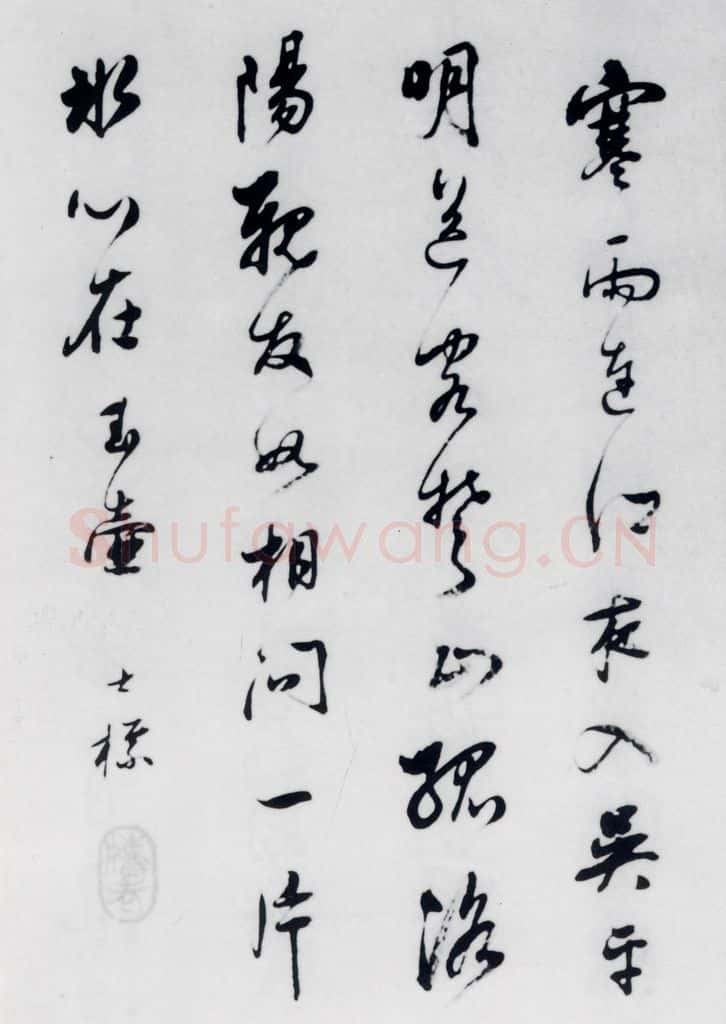 寒雨連江夜入吳平
明送客楚山孤洛
陽親友如相問一片
冰心在玉壺
士標
Shufawang.CN